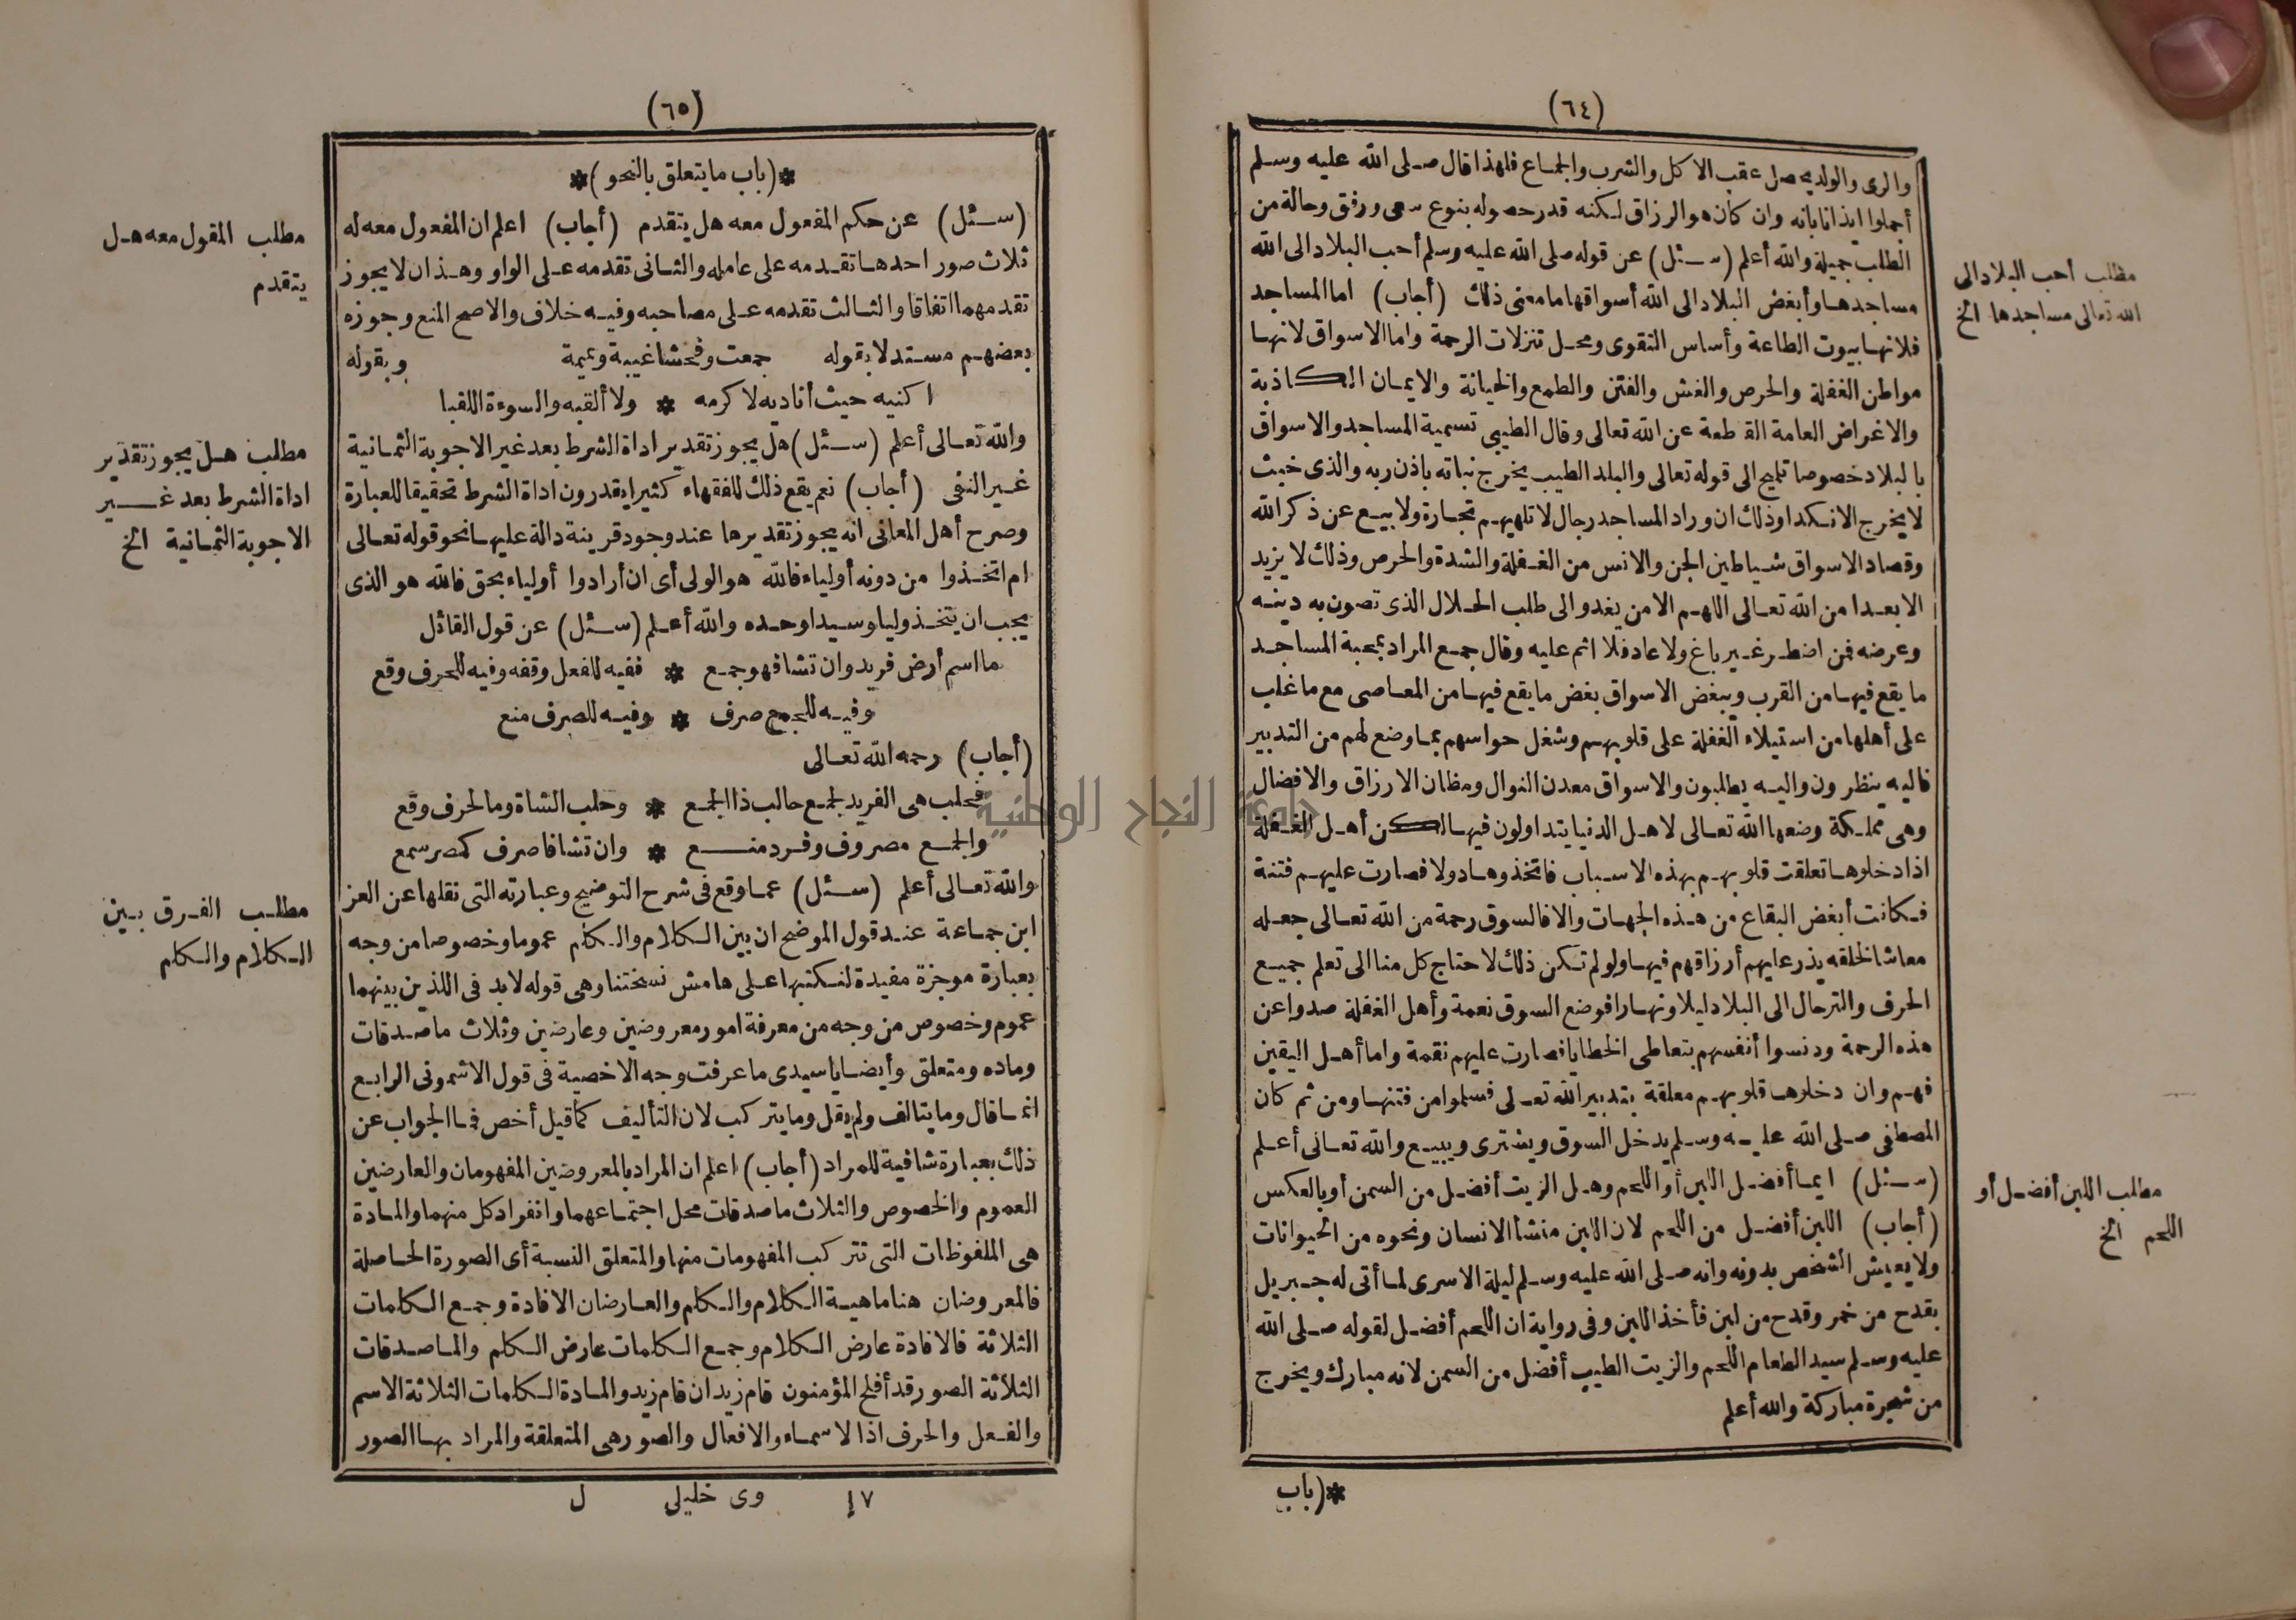 (٦٤)
والرى والولد يحصل عقب الاكل والشرب والجماع فلهذا قال صلى الله عليه وسلم
أجملوا ايذانا بانه وان كان هو الرزاق لكنه قدر حصوله بنوع سعى ورفق وحالة من
الطلب جميلة والله أعلم (سئل) عن قوله صلى الله عليه وسلم أحب البلاد الى الله
مساجدها وأبغض البلاد الى الله أسواقها ما معنى ذلك (أجاب) اما المساجد
فلانها بيوت الطاعة وأساس التقوى ومحل تنزلات الرحمة واما الاسواق لانها
مواطن الغفلة والحرص والغش والفتن والطمع والخيانة والايمان الكاذبة
والاغراض العامة القاطعة عن الله تعالى وقال الطيبى تسمية المساجد والاسواق
بالبلاد خصوصا تلميح الى قوله تعالى والبلد الطيب يخرج نباته باذن ربه والذى خبث
لا يخرج الا نكدا وذلك ان وراد المساجد رجال لا تلهيهم تجارة ولا بيع عن ذكر الله
وقصاد الاسواق شياطين الجن والانس من الغفلة والشدة والحرص وذلك لا يزيد
الا بعدا من الله تعالى اللهم الا من يغدو الى طلب الحلال الذى تصون به دينه
وعرضه فمن اضطر غير باغ ولا عاد فلا اثم عليه وقال جمع المراد بمحبة المساجد
ما يقع فيها من القرب وببغض الاسواق بغض ما يقع فيها من المعاصى مع ما غلب
على أهلها من استيلاء الغفلة على قلوبهم وشغل حواسهم بما وضع لهم من التدبير
فاليه ينظرون واليه يطلبون والاسواق معدن النوال ومظان الارزاق والافضال
وهى مملكة وضعها الله تعالى لاهل الدنيا يتداولون فيها لكن أهل الغفلة
اذا دخلوها تعلقت قلوبهم بهذه الاسباب فاتخذوها دولا فصارت عليهم فتنة
فكانت أبغض البقاع من هذه الجهات والا فالسوق رحمة من الله تعالى جعله
معاشا لخلقه يذر عليهم أرزاقهم فيها ولو لم تكن ذلك لاحتاج كل منا الى تعلم جميع
الحرف والترحال الى البلاد ليلا ونهارا فوضع السوق نعمة وأهل الغفلة صدوا عن
هذه الرحمة ودنسوا أنفسهم بتعاطى الخطايا فصارت عليهم نقمة واما أهل اليقين
فهم وان دخلوها قلوبهم معلقة بتدبير الله تعالى فسلموا من فتنتها ومن ثم كان
المصطفى صلى الله عليه وسلم يدخل السوق ويشترى ويبيع والله تعالى أعلم
(سئل) ايما أفضل اللبن أو اللحم وهل الزيت أفضل من السمن أو بالعكس
(أجاب) اللبن أفضل من اللحم لان اللبن منشأ الانسان ونحوه من الحيوانات
ولا يعيش الشخص بدونه وانه صلى الله عليه وسلم ليلة الاسرى لما أتى له جبريل
بقدح من خمر وقدح من لبن فأخذ اللبن وفى رواية ان اللحم أفضل لقوله صلى الله
عليه وسلم سيد الطعام اللحم والزيت الطيب أفضل من السمن لانه مبارك ويخرج
من شجرة مباركة والله أعلم
*(باب
مطلب أحب البلاد الى
الله تعالى مساجدها الخ
مطلب اللبن أفضل أو
اللحم الخ
(٦٥)
*(باب ما يتعلق بالنحو)*
(سئل) عن حكم المفعول معه هل يتقدم (أجاب) اعلم ان المفعول معه له
ثلاث صور احدها تقدمه على عامله والثانى تقدمه على الواو وهذان لا يجوز
تقدمهما اتفاقا والثالث تقدمه على مصاحبه وفيه خلاف والاصح المنع وجوزه
بعضهم مستدلا بقوله جمعت وفحشا غيبة ونميمة وبقوله
اكنيه حيث أناديه لاكرمه * ولا ألقبه والسوءة اللقبا
والله تعالى أعلم (سئل) هل يجوز تقدير اداة الشرط بعد غير الاجوبة الثمانية
غير النفى (أجاب) نعم يقع ذلك للفقهاء كثيرا يقدرون اداة الشرط تحقيقا للعبارة
وصرح أهل المعانى انه يجوز تقديرها عند وجود قرينة دالة عليها نحو قوله تعالى
ام اتخذوا من دونه أولياء فالله هو الولى أى ان أرادوا أولياء بحق فالله هو الذى
يجب ان يتخذ وليا وسيدا وحده والله أعلم (سئل) عن قول القائل
ما اسم أرض فريد وان تشا فهو جمع * ففيه للفعل وقفه وفيه للحرف وقع
وفيه للجمع صرف * وفيه للصرف منع
(أجاب) رحمه الله تعالى
فحلب هى الفريد لجمع حالب ذا الجمع * وحلب الشاة وما لحرف وقع
والجمع مصروف وفرد منع * وان تشا فاصرف كمصر سمع
والله تعالى أعلم (سئل) عما وقع فى شرح التوضيح وعبارته التى نقلها عن العز
ابن جماعة عند قول الموضح ان بين الكلام والكلم عموما وخصوصا من وجه
بعبارة موجزة مفيدة لنكتبها على هامش نسختنا وهى قوله لا بد فى اللذين بينهما
عموم وخصوص من وجه من معرفة امور معروضين وعارضين وثلاث ماصدقات
وماده ومتعلق وأيضا يا سيدى ما عرفت وجه الاخصية فى قول الاشمونى الرابع
انما قال وما يتالف ولم يقل وما يتركب لان التأليف كما قيل أخص فما الجواب عن
ذلك بعبارة شافية للمراد (أجاب) اعلم ان المراد بالمعروضين المفهومان والعارضين
العموم والخصوص والثلاث ماصدقات محل اجتماعهما وانفراد كل منهما والمادة
هى الملفوظات التى تتركب المفهومات منها والمتعلق النسبة أى الصورة الحاصلة
فالمعروضان هنا ماهية الكلام والكلم والعارضان الافادة وجمع الكلمات
الثلاثة فالافادة عارض الكلام وجمع الكلمات عارض الكلم والماصدقات
الثلاثة الصور قد أفلح المؤمنون قام زيد ان قام زيد والمادة الكلمات الثلاثة الاسم
والفعل والحرف اذ الاسماء والافعال والصور هى المتعلقة والمراد بها الصور
١٧ وى خليلى ل
مطلب المفول معه هل
يتقدم
مطلب هل يجوز تقدير
اداة الشرط بعد غير
الاجوبة الثمانية الخ
مطلب الفرق بين
الكلام والكلم
جامعة النجاح الوطنية